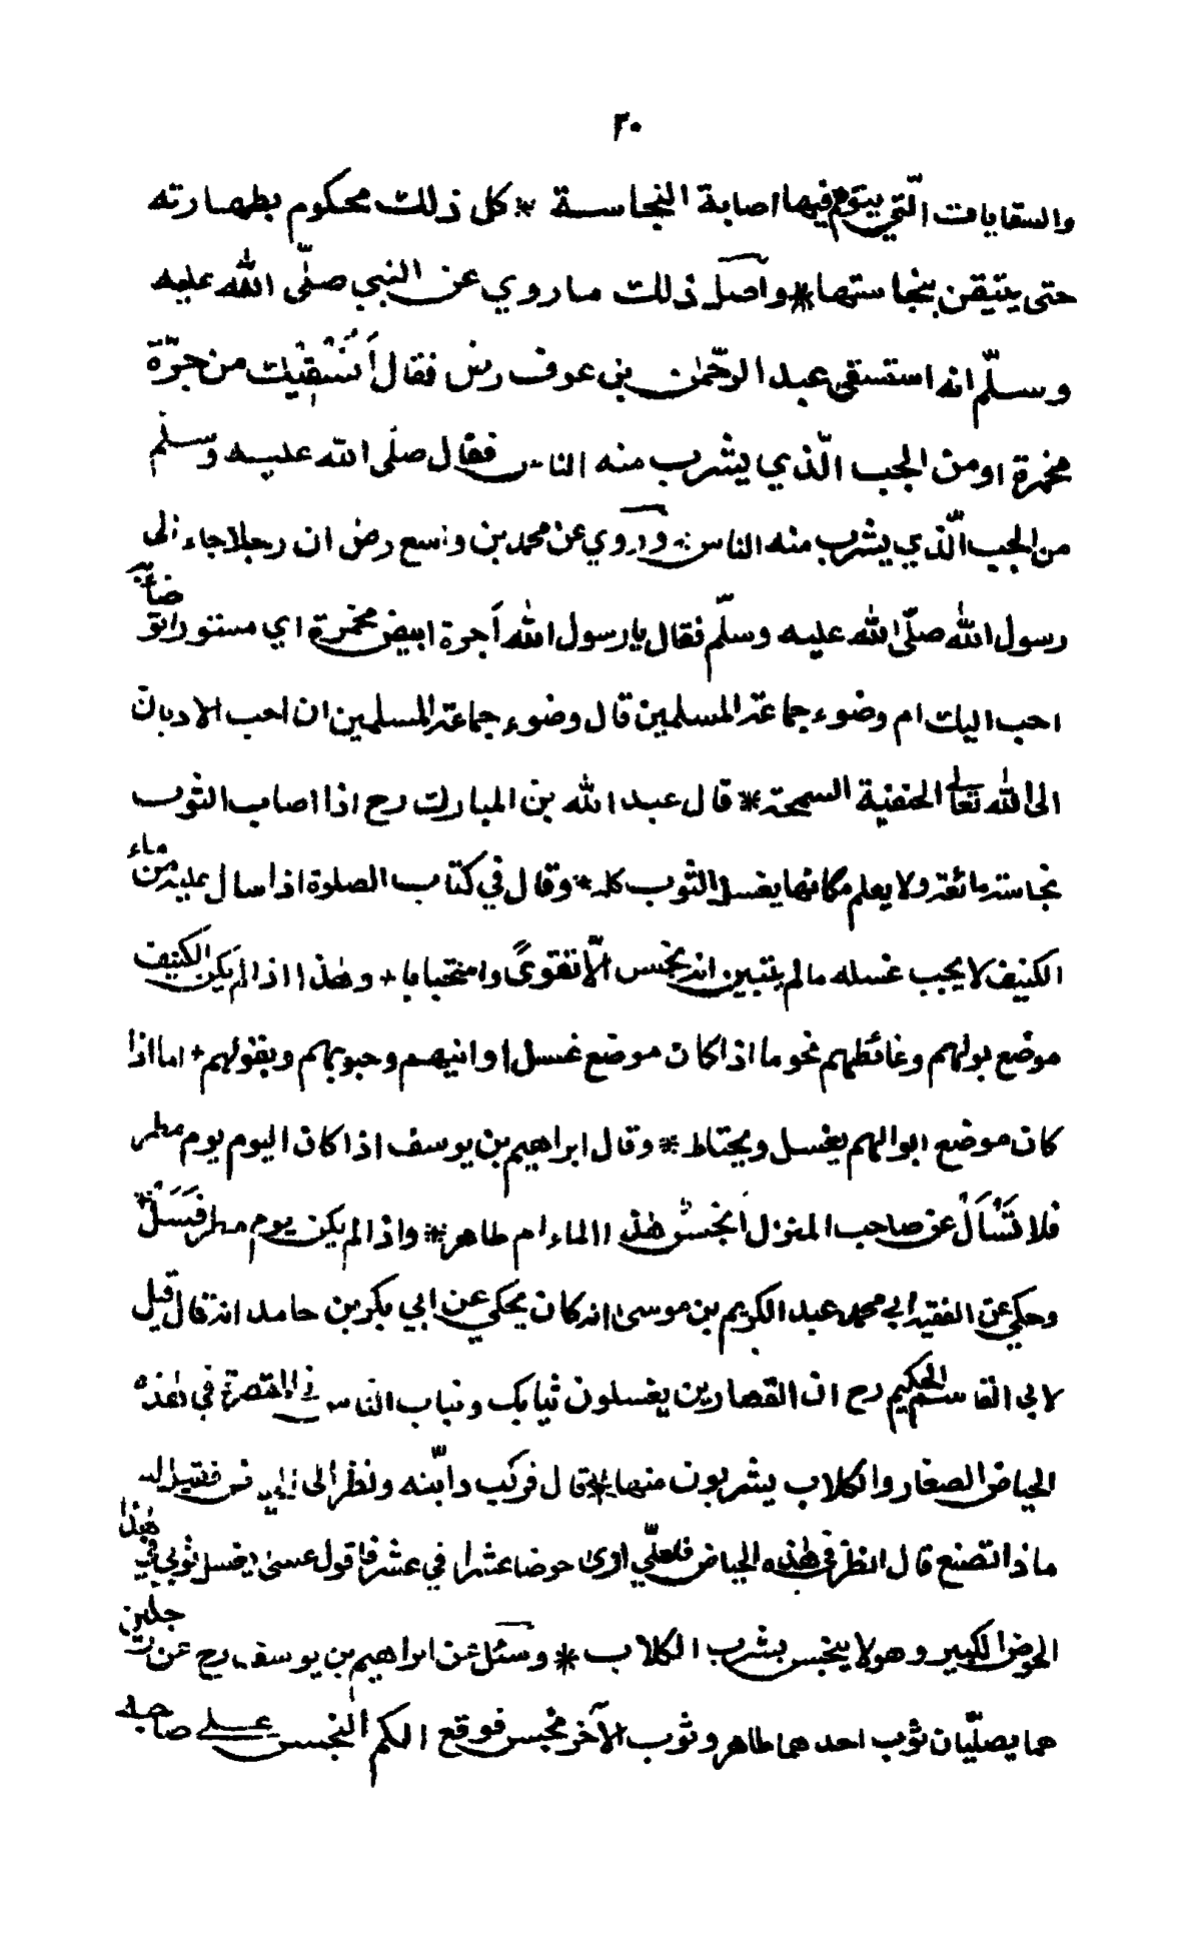 ٣٠
والسقايات الّتي يتوهم فيها اصابة النجاسة * كل ذلك محكوم بطهارته
حتى يتيقن بنجاستها * واصل ذلك ما روي عن النبي صلّى الله عليه
وسلّم انه استسقى عبد الرّحمٰن بن عوف رض فقال أَنَسْقِيْك من جرّة
مخمرة او من الجب الّذي يشرب منه الناس فقال صلّى الله عليه وسلم
من الجب الّذي يشرب منه الناس * وروي عن محمد بن واسع رض ان رجلا جاء الى
رسول الله صلّى الله عليه وسلّم فقال يا رسول الله أجرة ابيض مخمرة اي مستور اتوضأ به
احب اليك ام وضوء جماعة المسلمين قال وضوء جماعة المسلمين ان احب الاديان
الى الله تعالى الحنفية السمحة * قال عبد الله بن المبارك رح اذا اصاب الثوب
نجاسة مائعة ولا يعلم مكانها يغسل الثوب كله * وقال في كتاب الصلوة اذا سال عليه من ماء
الكنيف لا يجب غسله ما لم يتبين انه نجس الّا تقوىً وامتحبابا + وهٰذا اذا لم يكن الكنيف
موضع بولهم وغائطهم نحو ما اذا كان موضع غسل اوانيهم وحبوبهم وبقولهم + اما اذا
كان موضع ابوالهم يغسل ويحتاط * وقال ابراهيم بن يوسف اذا كان اليوم يوم مطر
فلا تَسْأَلْ عن صاحب المنزل أنجس هٰذا الماء ام طاهر * واذا لم يكن يوم مطر فَسَلْ *
وحكي عن الفقيه ابي محمد عبد الكريم بن موسىٰ انه كان يحكي عن ابي بكر بن حامد انه قال قيل
لابي القاسم الحكيم رح ان القصارين يغسلون ثيابك وثياب الناس في المقصرة في هٰذه
الحياض الصغار والكلاب يشربون منها * قال فركب دابّته ونظر الى فقيل له
ما ذا تصنع قال انظر في هٰذه الحياض فلعلّي ارىٰ حوضا عشرا في عشر فاقول عسىٰ يغسل ثوبي في هٰذا
الحوض الكبير وهو لا ينجس بشرب الكلاب * وسئل عن ابراهيم بن يوسف رح عن رجلين
هما يصلّيان ثوب احدهما طاهر وثوب الآخر نجس فوقع الكم النجس على صاحبه